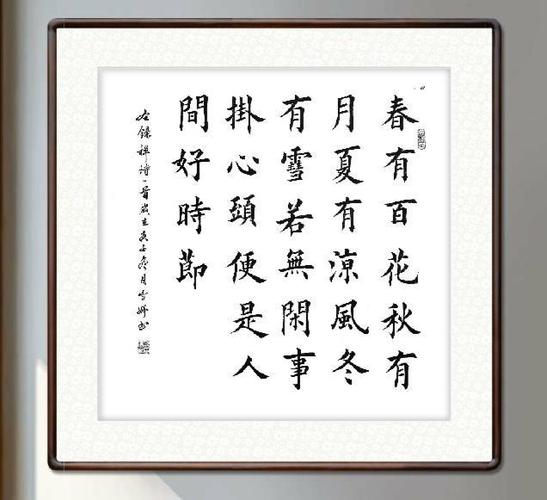 春有百花秋有
月夏有涼風冬
有雪若無閑事
掛心頭便是人
間好時節
右錄禪詩一首歲在